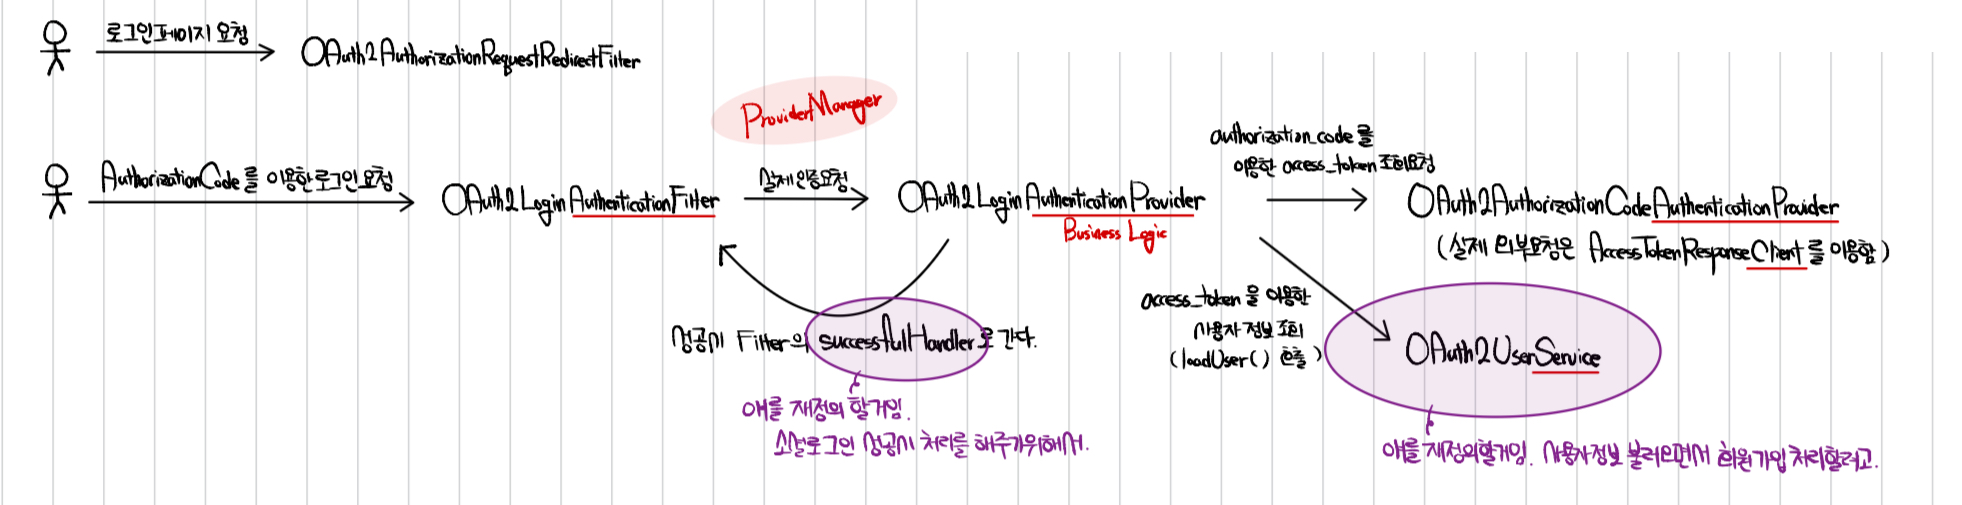 로그인페이지 요청
OAuth2AuthorizationRequestRedirectFilter
ProviderManager
AuthorizationCode를 이용한로그인 요청
OAuth2LoginAuthenticationFilter
실제인증요청
OAuth2LoginAuthenticationProvider
Business Logic
authorization_code를
이용한 access_token 조회요청
OAuth2AuthorizationCodeAuthenticationProvider
(실제 외부요청은 AccessTokenResponseClient를 이용함)
성공시 Filter의 successfulHandler로 간다.
얘를 재정의 할거임.
소셜로그인 성공시 처리를 해주기위해서.
access_token을 이용한
사용자 정보 조회
(loadUser() 호출)
OAuth2UserService
얘를 재정의할거임. 사용자정보 불러오면서 회원가입처리할려고.